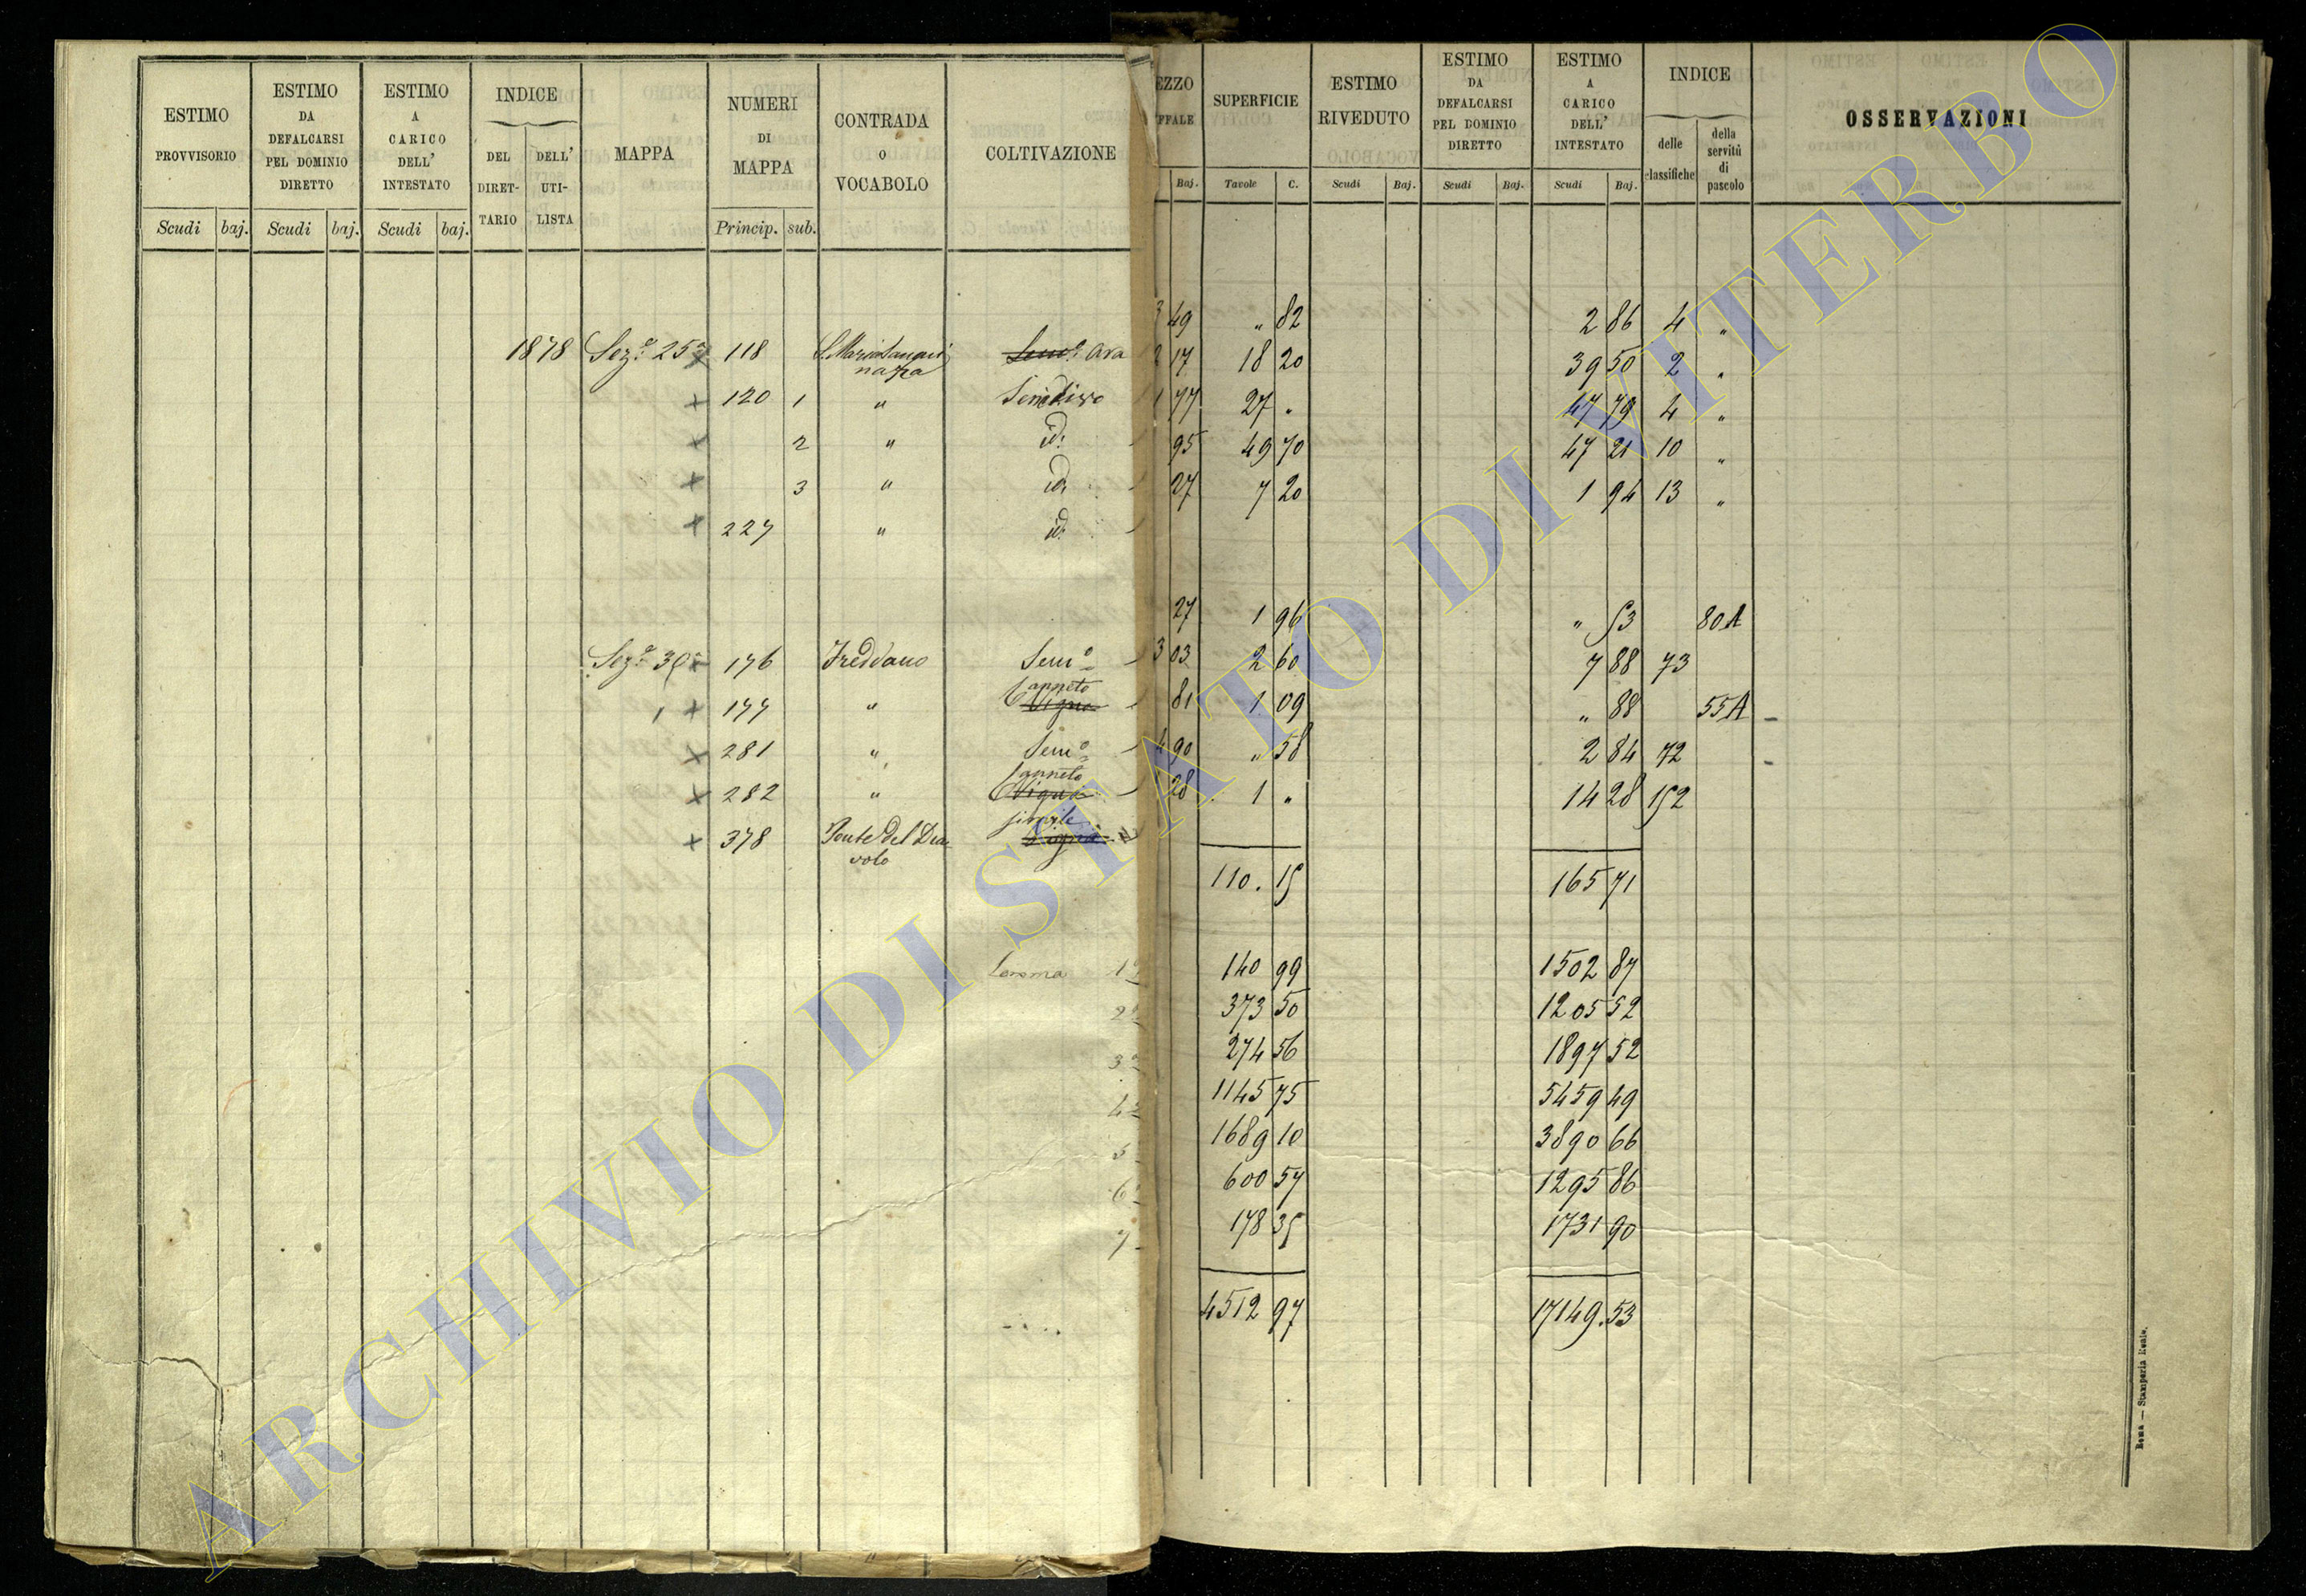 ESTIMO
PROVVISORIO
Scudi baj.
ESTIMO
DA
DEFALCARSI
PEL DOMINIO
DIRETTO
Scudi baj.
ESTIMO
A
CARICO
DELL'
INTESTATO
Scudi baj.
INDICE
DEL
DIRET-
TARIO
DELL'
UTI-
LISTA
MAPPA
NUMERI
DI
MAPPA
Princip. sub.
CONTRADA
O
VOCABOLO
COLTIVAZIONE
1878 Sez.e 25a 118
naza
Ara
120 1 " Seminativo
2 " id.
3 " id.
227 " id.
Sez.e 176 Freddano Sem.o
177 " Canneto
Vigna
281 " Sem.o
282 " Canneto
Vigna
378 Ponte del Dia-
volo
Vigna
Somma 1a
2a
3a
4a
5
6a
7
EZZO
FFALE
Baj.
SUPERFICIE
Tavole C.
ESTIMO
RIVEDUTO
Scudi Baj.
ESTIMO
DA
DEFALCARSI
PEL DOMINIO
DIRETTO
Scudi Baj.
ESTIMO
A
CARICO
DELL'
INTESTATO
Scudi Baj.
INDICE
delle
classifiche
della
servitù
di
pascolo
OSSERVAZIONI
3 49 " 82 2 86 4 "
17 18 20 39 50 2 "
1 77 27 " 47 79 4 "
95 49 70 47 21 10 "
27 7 20 1 94 13 "
27 1 96 " 53 80A
3 03 2 60 7 88 73
81 1 09 " 88 55A
4 90 " 58 2 84 72
28 1 " 14 28 152
110. 15 165 71
140 99 1502 87
373 50 1205 52
274 56 1897 52
1145 75 5459 49
1689 10 3890 66
600 57 1295 86
178 35 1731 90
4512 97 17149.53
Roma — Stamperia Reale.
ARCHIVIO DI STATO DI VITERBO